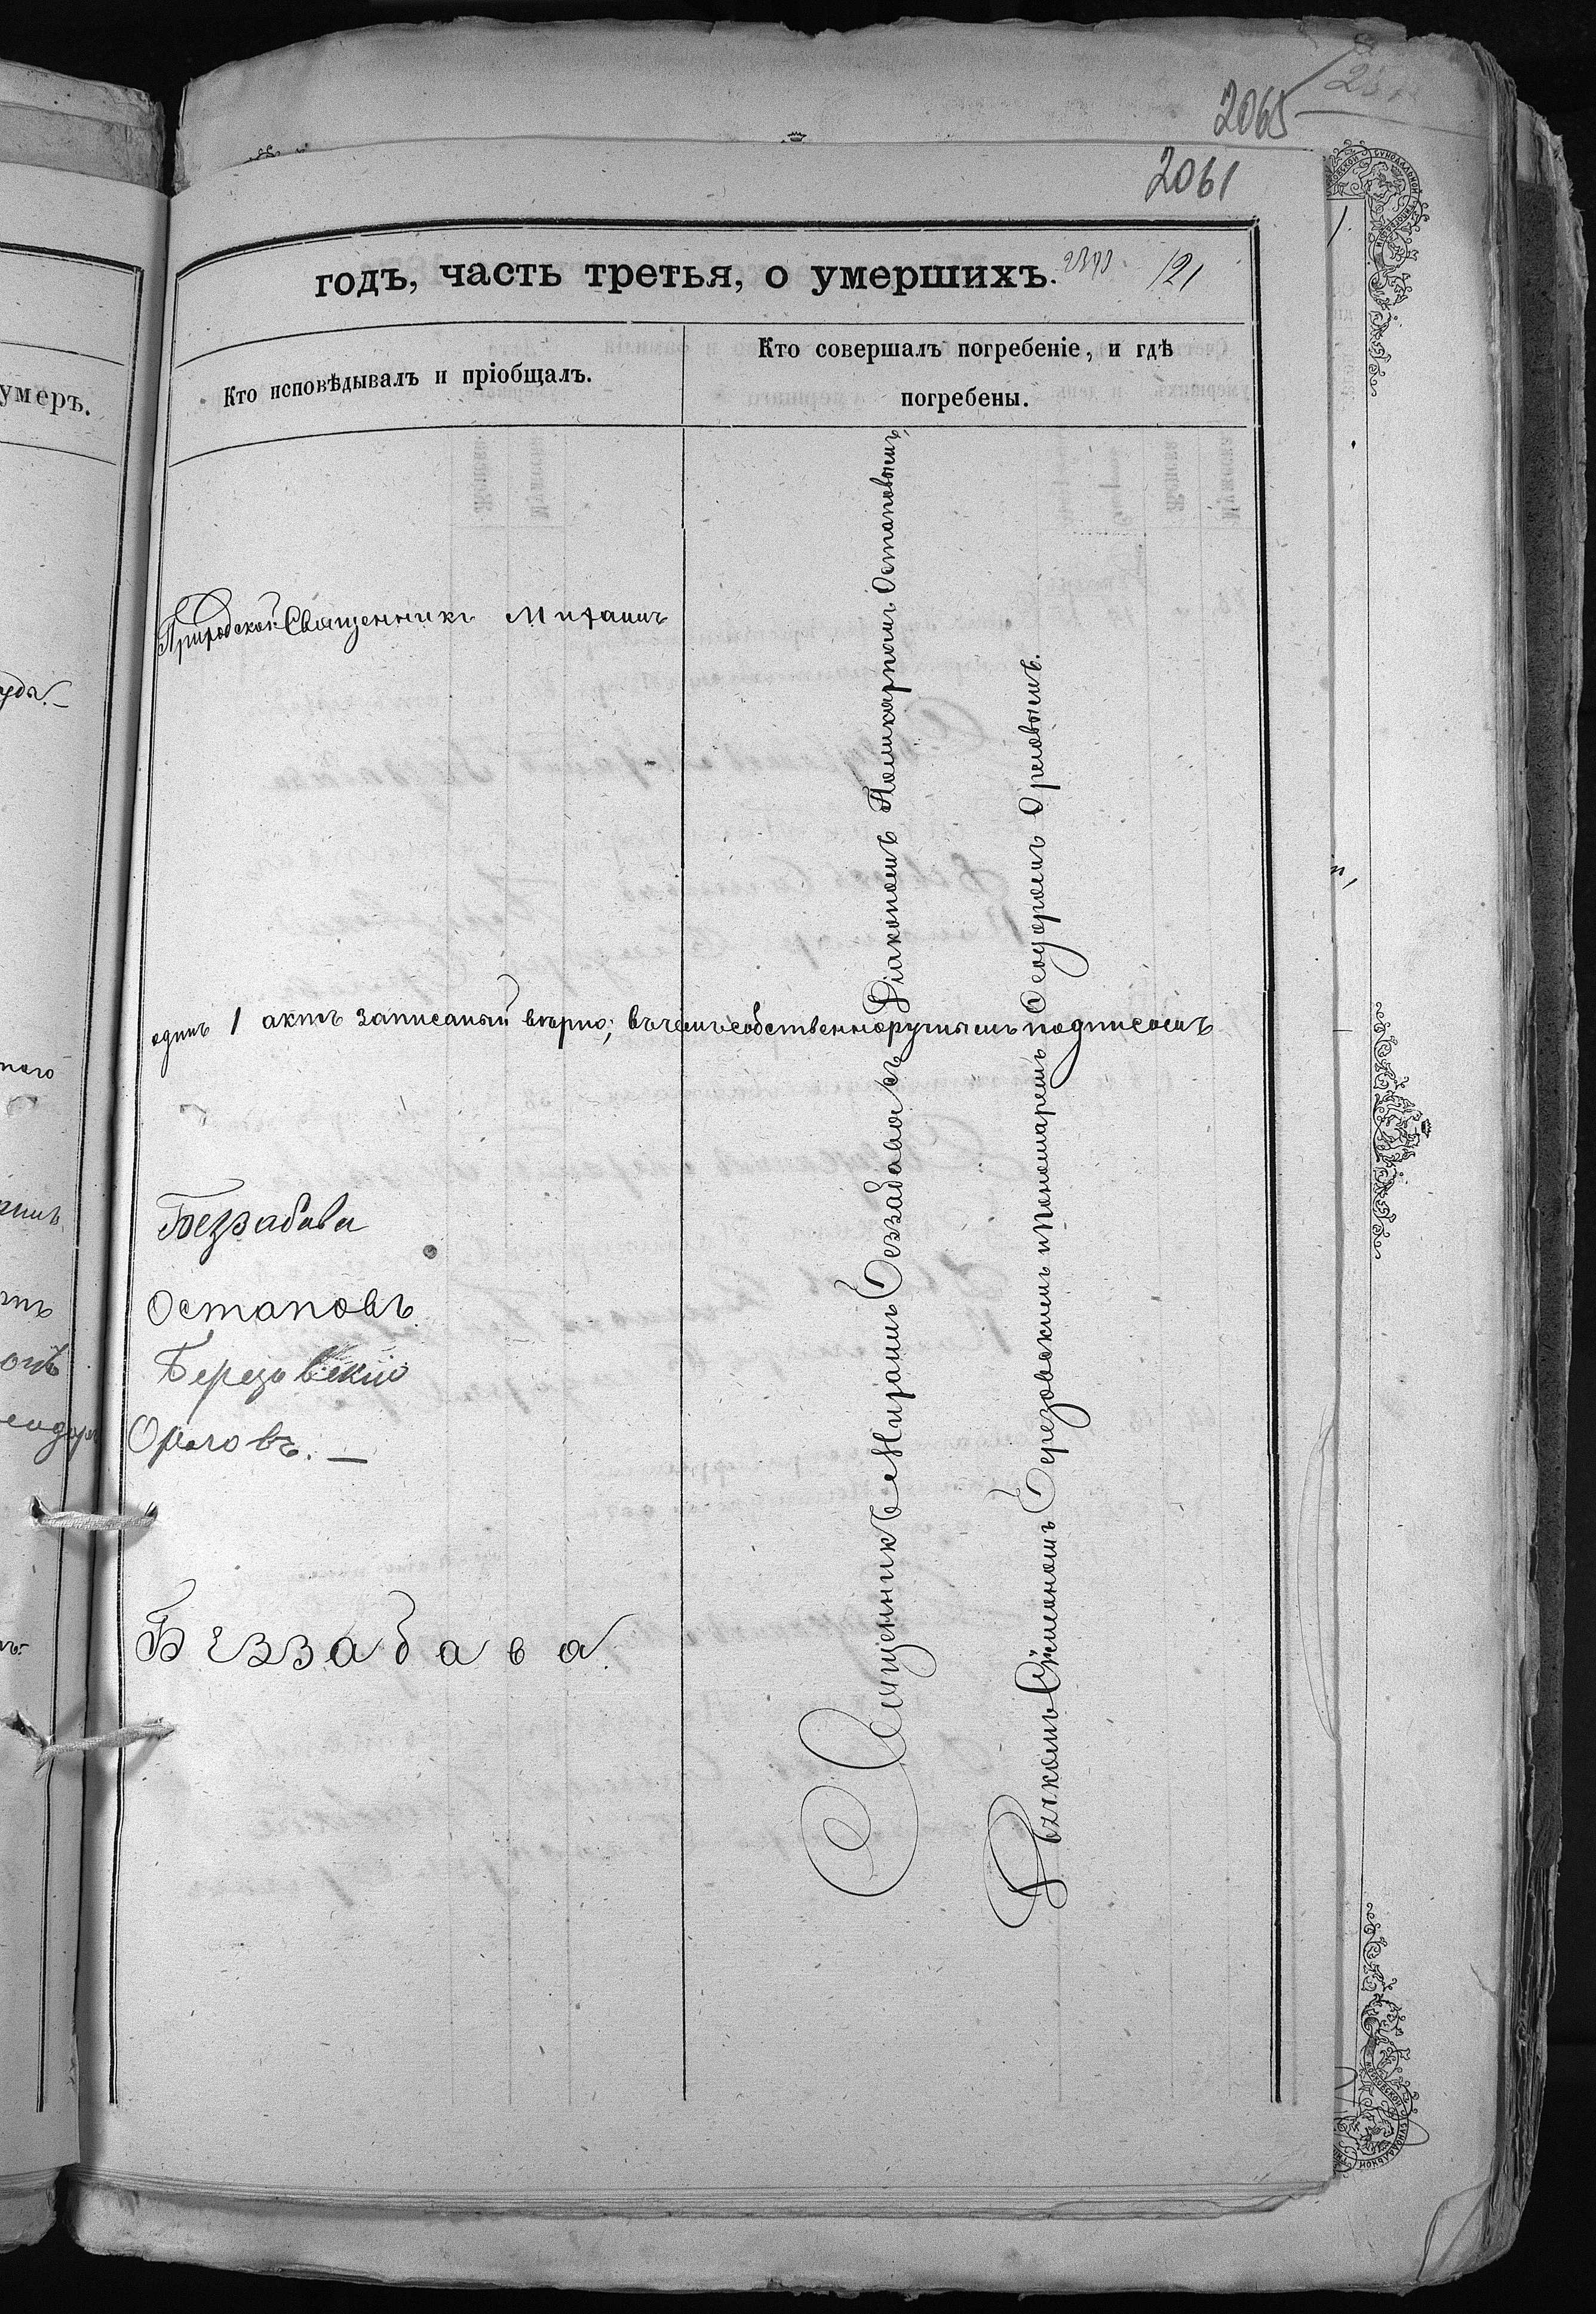 2065
2061
годъ, часть третья, о умершихъ.
121
Кто исповѣдывалъ и пріобщалъ.
Кто совершалъ погребеніе, и гдѣ
погребены.
умеръ.
Священникъ Михаилъ
Священникъ Михаилъ Беззабава съ Діакономъ Поликарпомъ Остаповымъ,
Дьячкомъ Сѵмеономъ Березовскимъ и Пономаремъ Ѳеодоромъ Орловымъ.
одинъ 1 актъ записаный вѣрно; въ чемъ собственноручнымъ подписомъ
Беззабава
Остаповъ
Березовскій
Орловъ. —
Беззабава.